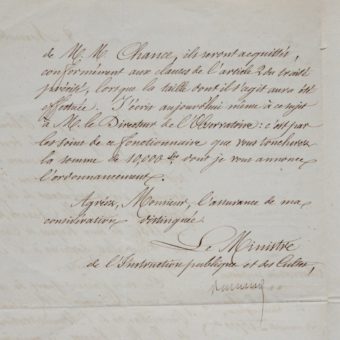 de M. M. Chance, ils seront acquittés,
conformément aux clauses de l'article 2 du traité
précité, lorsque la taille dont il s'agit aura été
effectuée. J'écris aujourd'hui même à ce sujet
à M. le Directeur de l'Observatoire : c'est par
les soins de ce fonctionnaire que vous toucherez
la somme de 10,000 f. dont je vous annonce
l'ordonnancement.
Agréez, Monsieur, l'assurance de ma
considération distinguée.
Le Ministre
de l'Instruction publique et des Cultes,